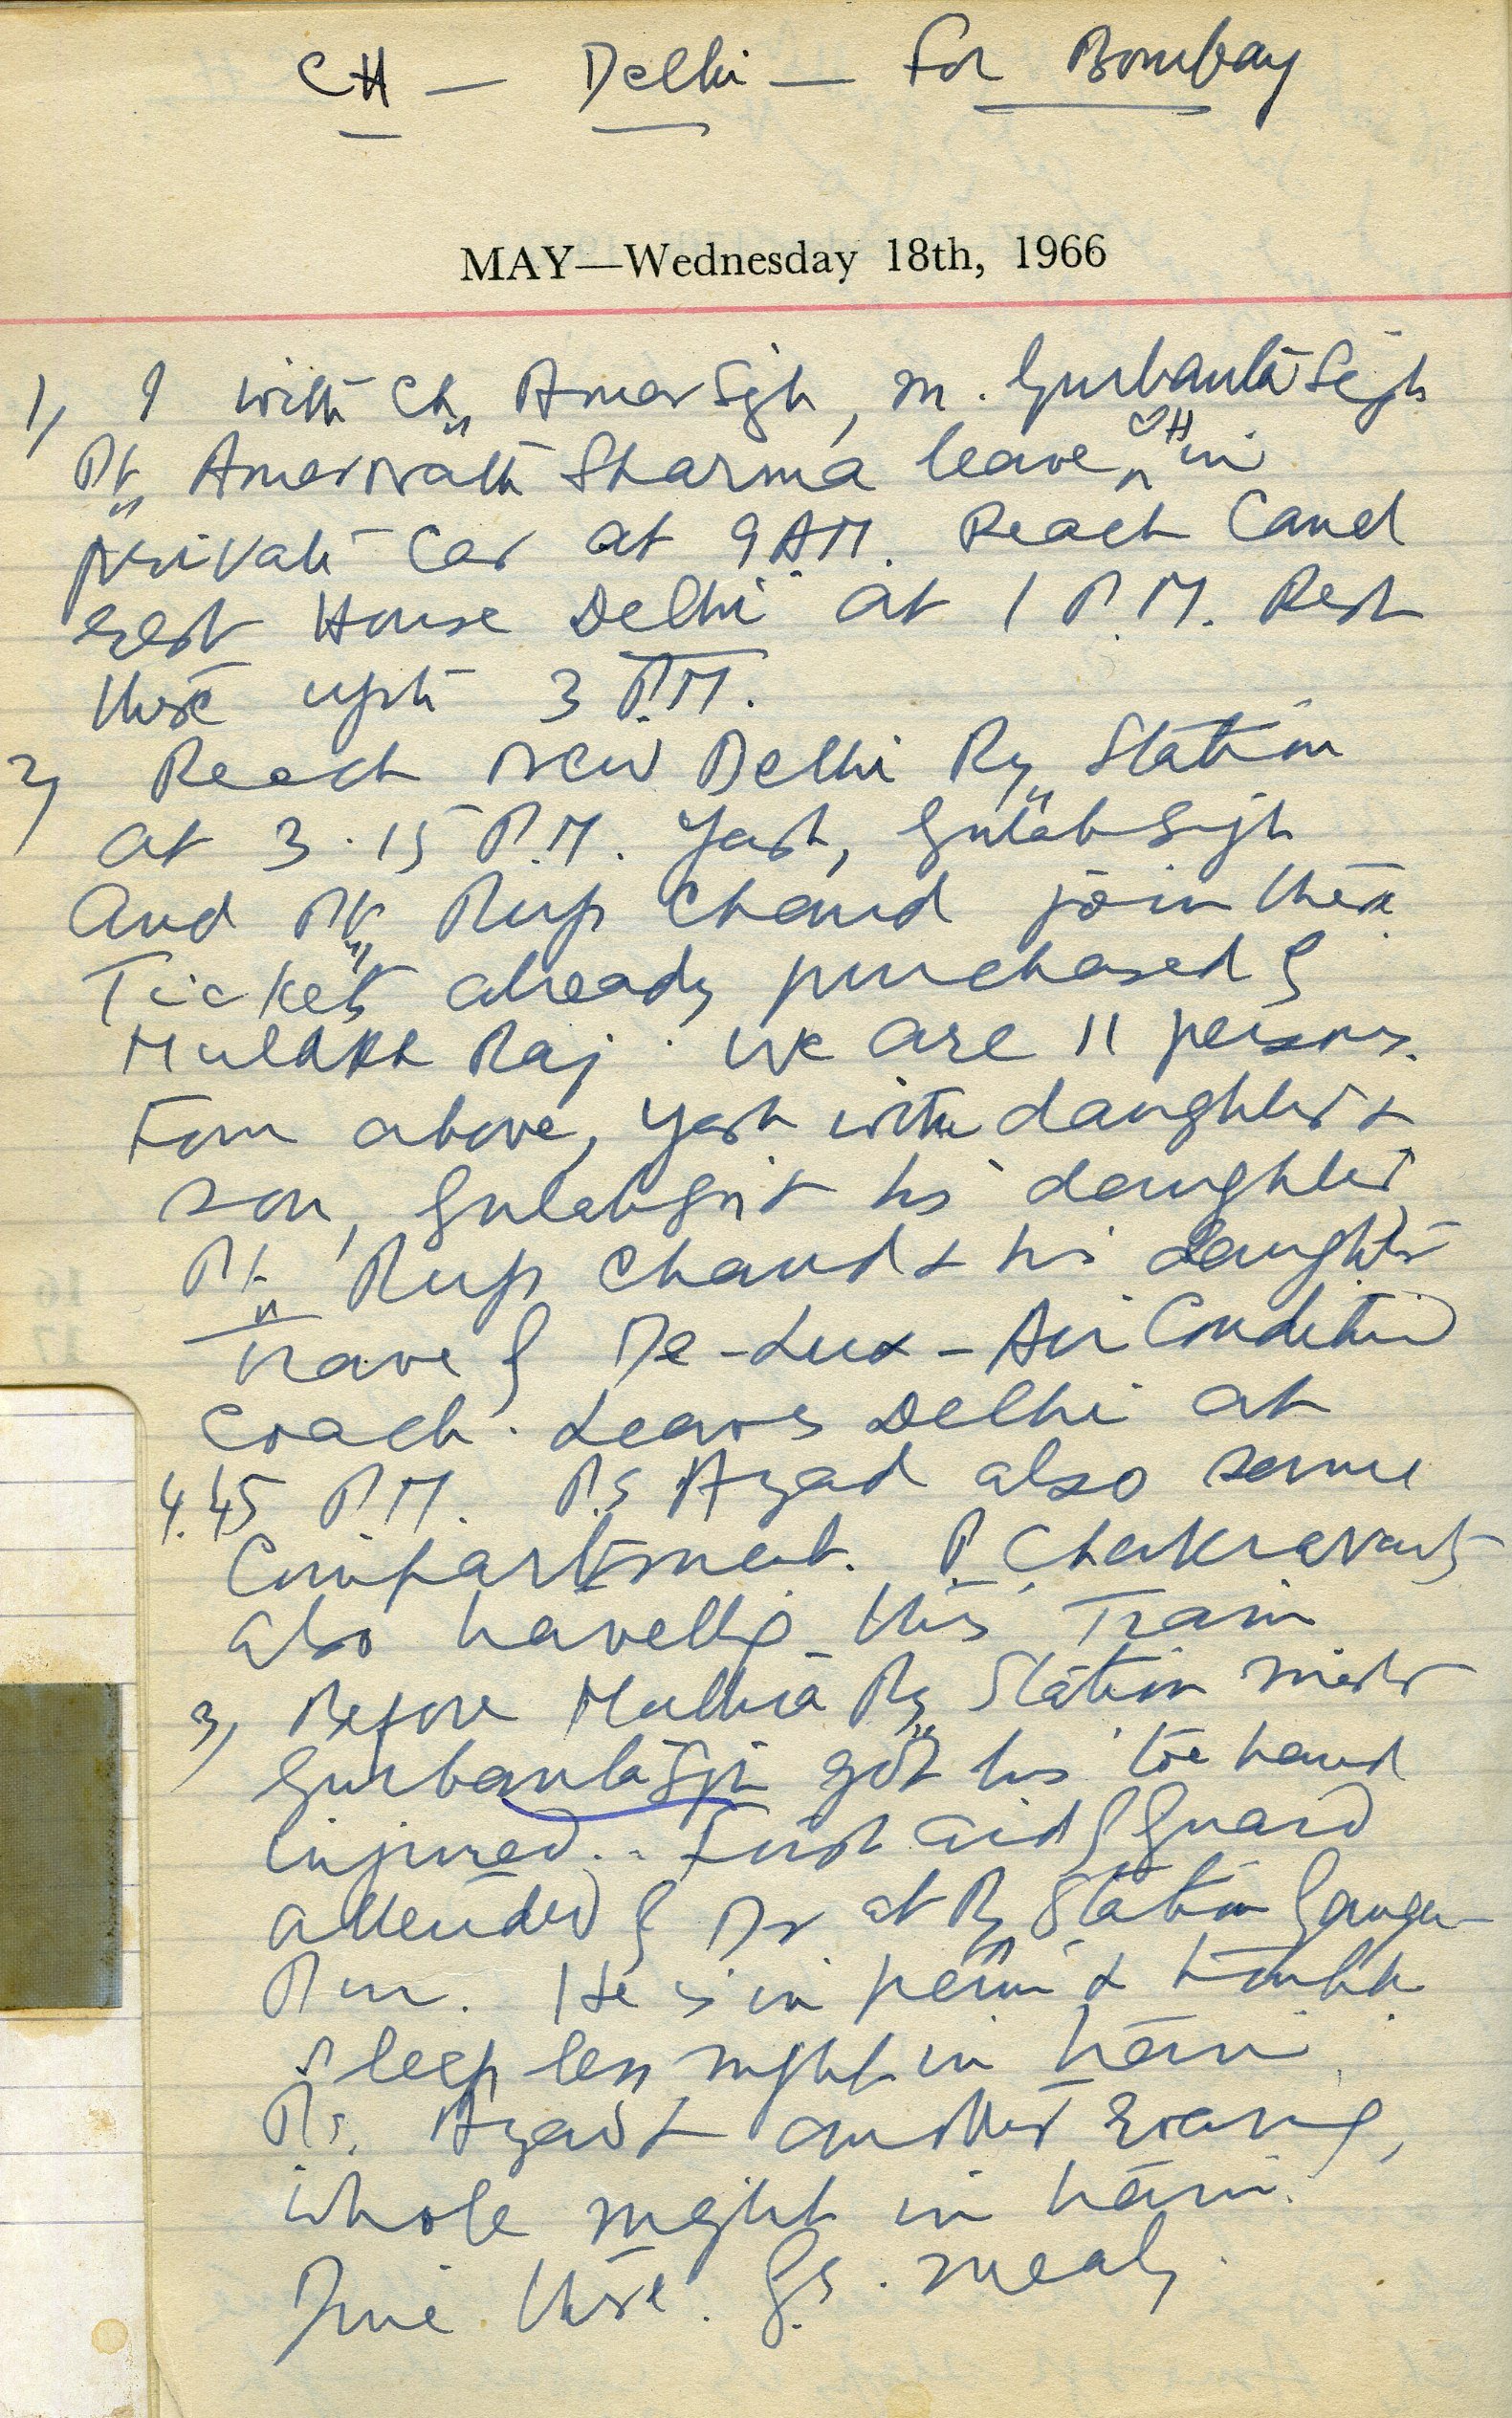 CH — Delhi — For Bombay
MAY—Wednesday 18th, 1966
1) I with Ch. Amar Sigh, M. Gurbanta Sigh
Pt. Amarnath Sharma leave CH in
private Car at 9 AM. Reach Canal
Rest House Delhi at 1 P.M. Rest
there upto 3 P.M.
2) Reach New Delhi Ry Station
at 3.15 P.M. Yash, Gulab Sigh
and Pt. Rup Chand join there
Tickets already purchased by
Mulakh Raj. We are 11 persons.
Four above, Yash with daughter &
son, Gulab & his daughter
Pt. Rup Chand & his daughter
Travel by De-Lux - Air Condition
Coach. Leaves Delhi at
4.45 P.M. P.S Azad also same
Compartment. P. Chakravarty
also travellig this Train
3) Before Mathura Ry Station
Gurbanta got his hand
injured. First aid by Guard
attended by Dr at Ry Station Gangapur
Pur. He is in pain &
Sleepless night in train.
P.S. Azad & another
whole night in train.
there. meals.